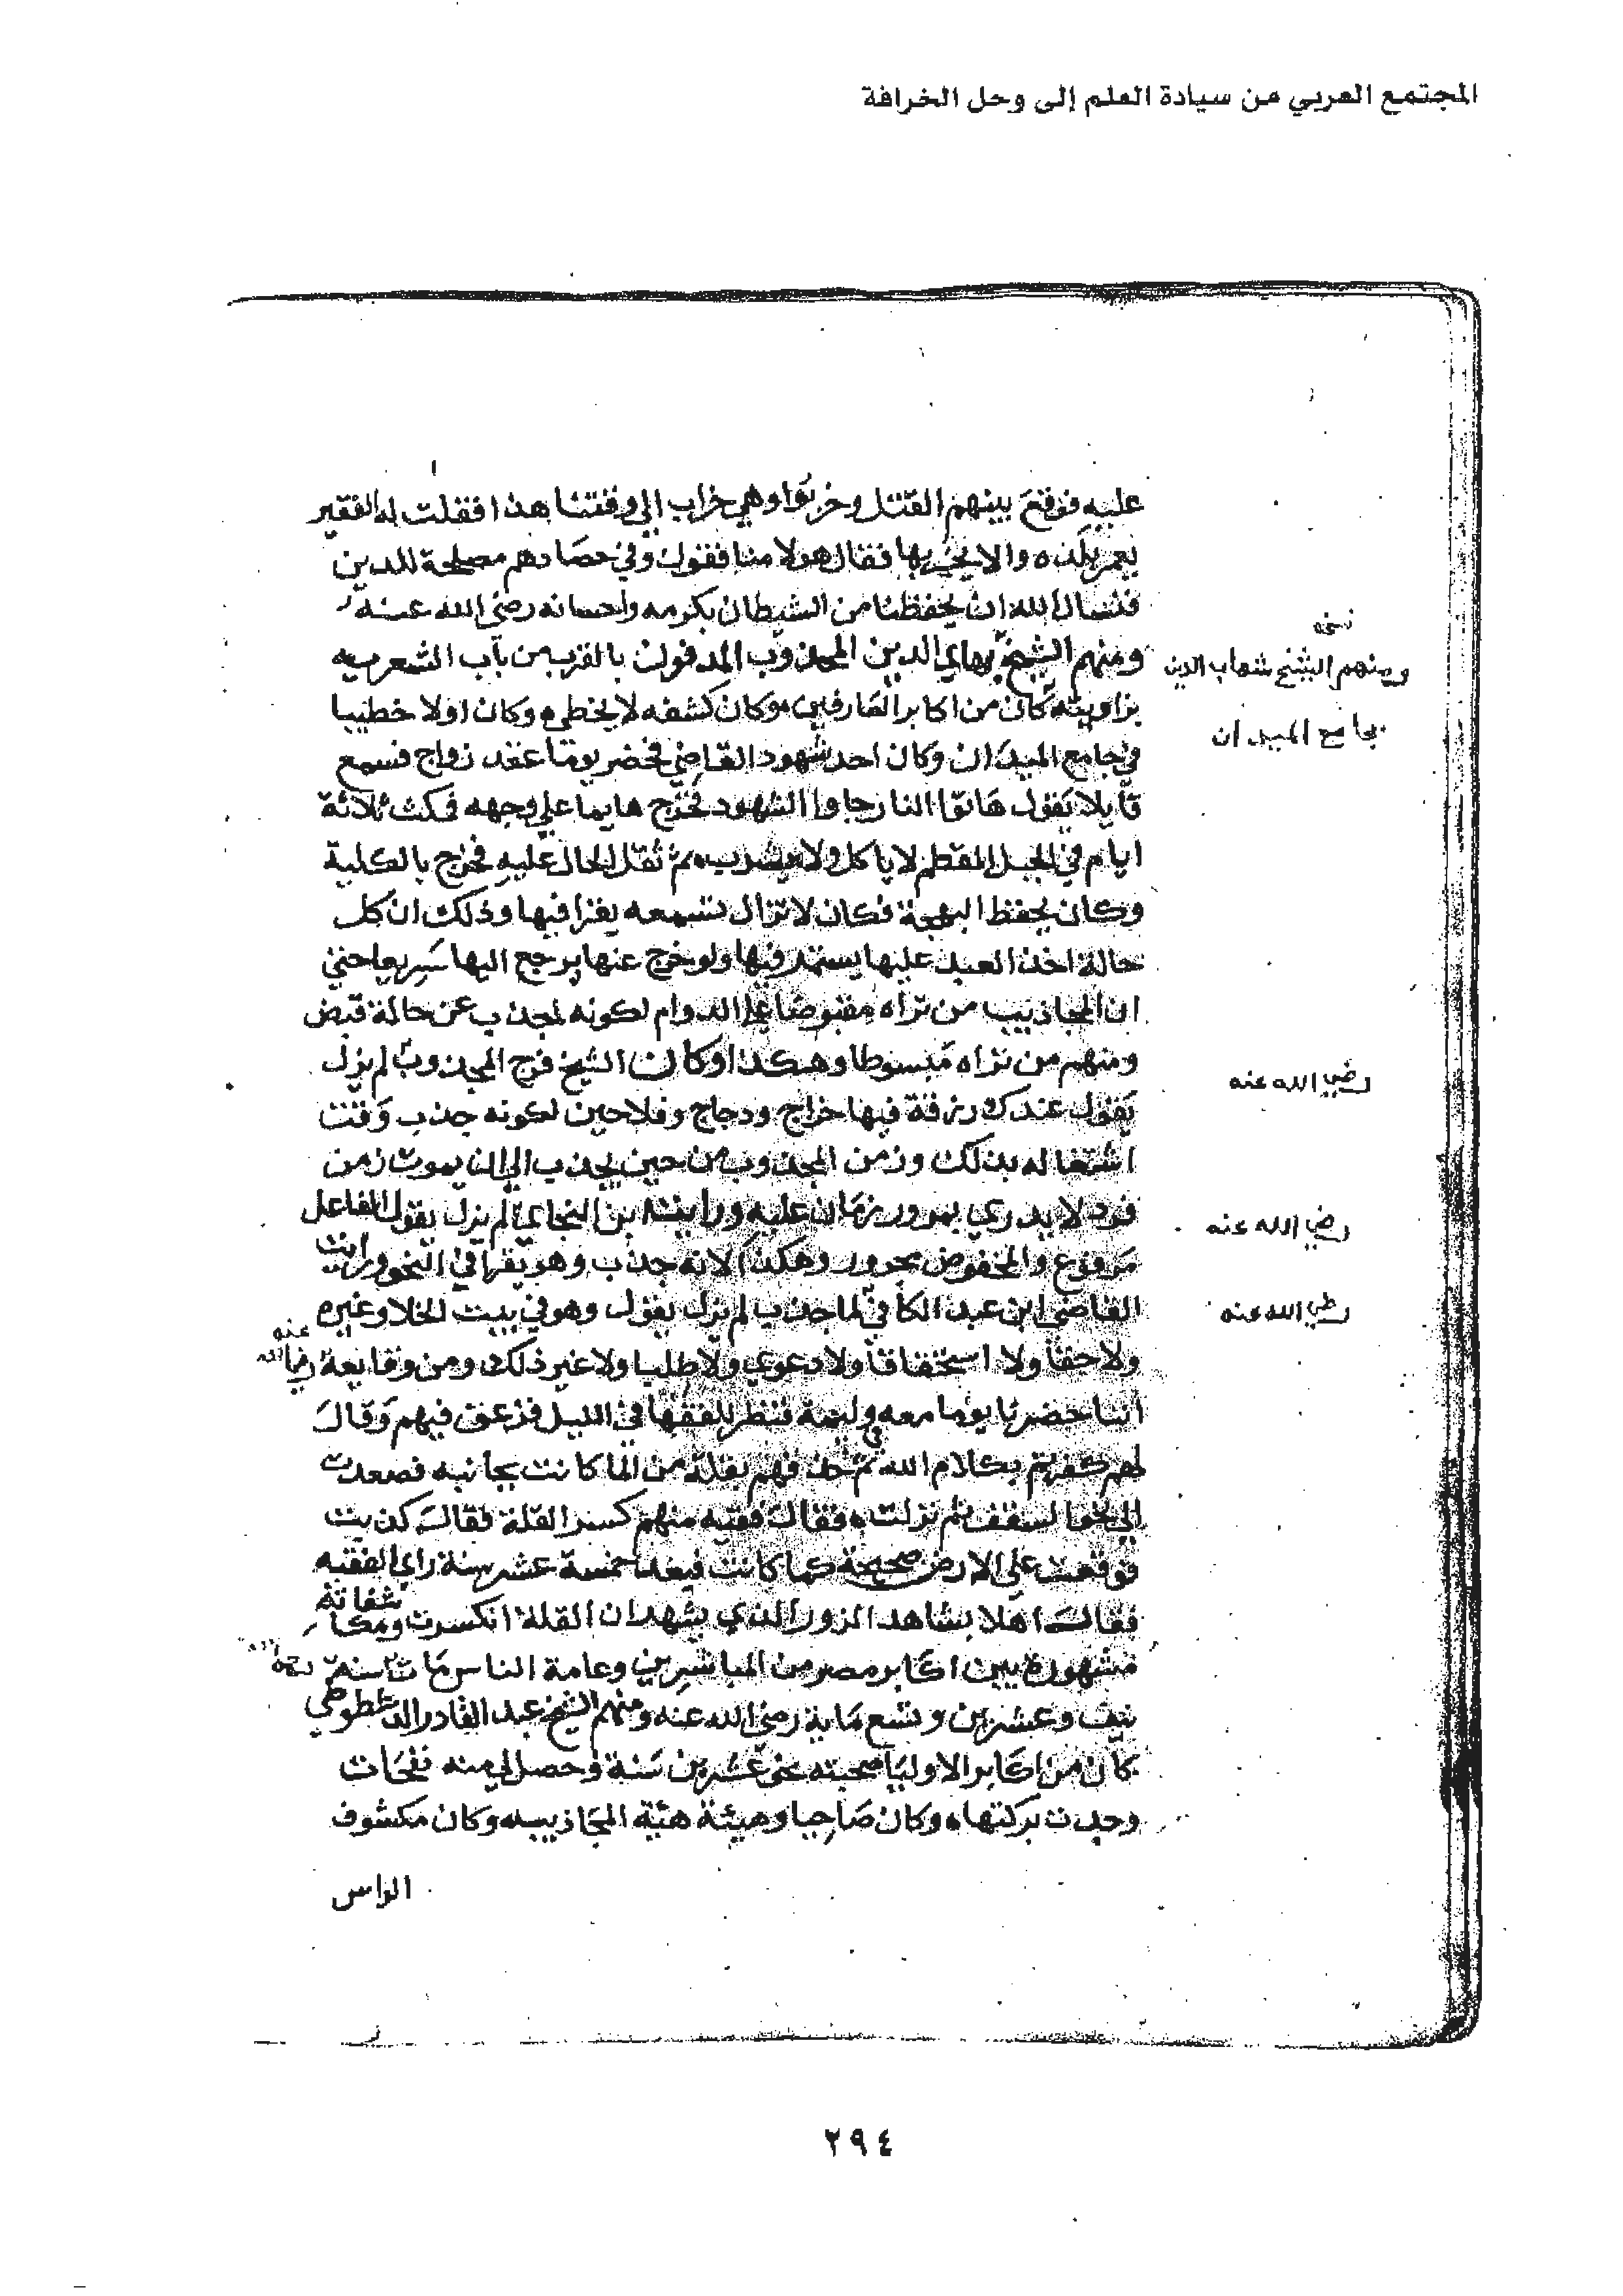 المجتمع العربي من سيادة العلم إلى وحل الخرافة
عليه فوقع بينهم القتل وخربوا وهي خراب الى وقتنا هذا فقلت له الفقير
يعمر بلده والا يخربها فقال هولا منافقون وفي حصادهم مصلحة للدين
فنسال الله ان يحفظنا من الشيطان بكرمه واحسانه رضي الله عنه
نسخه
ومنهم الشيخ شهاب الدين
ومنهم الشيخ بهاي الدين المجذوب المدفون بالقرب من باب الشعريه
بزاويته كان من اكابر العارفين وكان كشفه لا يخطي وكان اولا خطيبا
بجامع الميدان
في جامع الميدان وكان احد شهود القاضي فحضر يوما عقد زواج فسمع
قايلا يقول هاتوا النار جاوا الشهود فخرج هايما على وجهه فمكث ثلاثة
ايام في الجبل المقطم لا ياكل ولا يشرب ثم ثقل الحال عليه فخرج بالكلية
وكان يحفظ البهجة فكان لا تزال تسمعه يقرا فيها وذلك ان كل
حالة اخذ العبد عليها يستمر فيها ولو خرج عنها يرجع اليها سريعا حتي
ان المجاذيب من تراه مقبوضا على الدوام لكونه جذب عن حالة قبض
ومنهم من تراه مبسوطا وهكذا وكان الشيخ فرج المجذوب لم يزل
رضي الله عنه
يقول عندك رزقة فيها خراج ودجاج وفلاحين لكونه جذب وقت
اشتغاله بذلك وزمن المجذوب من حين يجذب الى ان يموت زمن
فرد لا يدري بمرور زمان عليه ورايت ابن البجاي لم يزل يقول الفاعل
رضي الله عنه
مرفوع والمخفوض مجرور وهكذا لانه جذب وهو يقرا في النحو ورايت
القاضي ابن عبد الكافي لما جذب لم يزل يقول وهو في بيت الخلا وغيره
رضي الله عنه
ولا حقا ولا استحقاقا ولا دعوي ولا طلبا ولا غير ذلك ومن وقايعه رضي الله عنه
اننا حضرنا يوما معه وليمة فنظر للفقها في الليل فزعق فيهم وقال
لهم كفرتم بكلام الله ثم حذفهم بقلة من الما كانت بجانبه فصعدت
الى نحو السقف ثم نزلت فقال فقيه منهم كسر القلة فقال كذبت
فوقعت على الارض صحيحة كما كانت فبعد خمسة عشر سنة راي الفقيه
فقال اهلا بشاهد الزور الذي يشهد ان القلة انكسرت ومكاشفاته
مشهورة بين اكابر مصر من المباشرين وعامة الناس مات سنة
نيف وعشرين وتسع ماية رضي الله عنه ومنهم الشيخ عبد القادر الدشطوطي
كان من اكابر الاوليا صحبته نحو عشرين سنة وحصل لي منه نفحات
وجدت بركتها وكان صاحيا وهيئة هيئة المجاذيب وكان مكشوف
الراس
٢٩٤